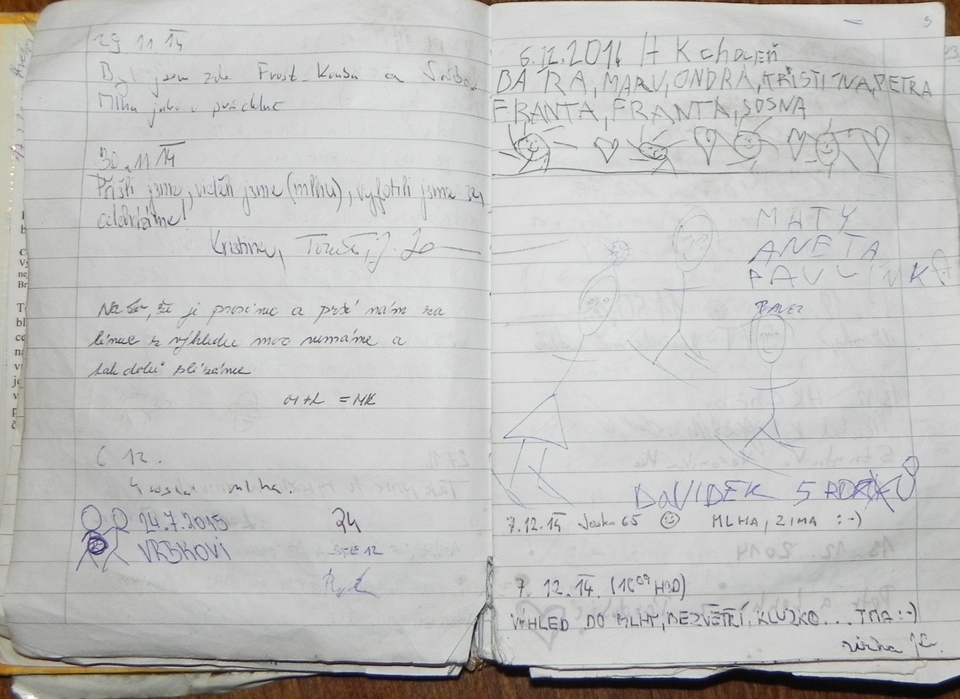 29 11 14
Byl jsem zde Frost Kouba a
Mlha jako v prádelně
30. 11 14
Přišli jsme, viděli jsme (mlhu), vyfotili jsme se,
odcházíme!
Kristina, Tomáš, J.
je prosinec a prší nám za
límec z výhledu moc nemáme a
tak dolů slézáme
M+L = MK
6 12.
mlha.
14.7.2015
VRBKOVI
24
5
6.12.2014 H K choceň
BÁRA, MARV, ONDRA, KRISTÝNA, PETRA
FRANTA, FRANTA, SOSNA
MATY
ANETA
PAVLÍNKA
PAVEL
DAVIDEK 5 ROK
7.12.14 65 MLHA, ZIMA :-)
7. 12. 14. (16 09 HOD)
VÝHLED DO MLHY, BEZVĚTŘÍ, KLUZKO... TMA :-)